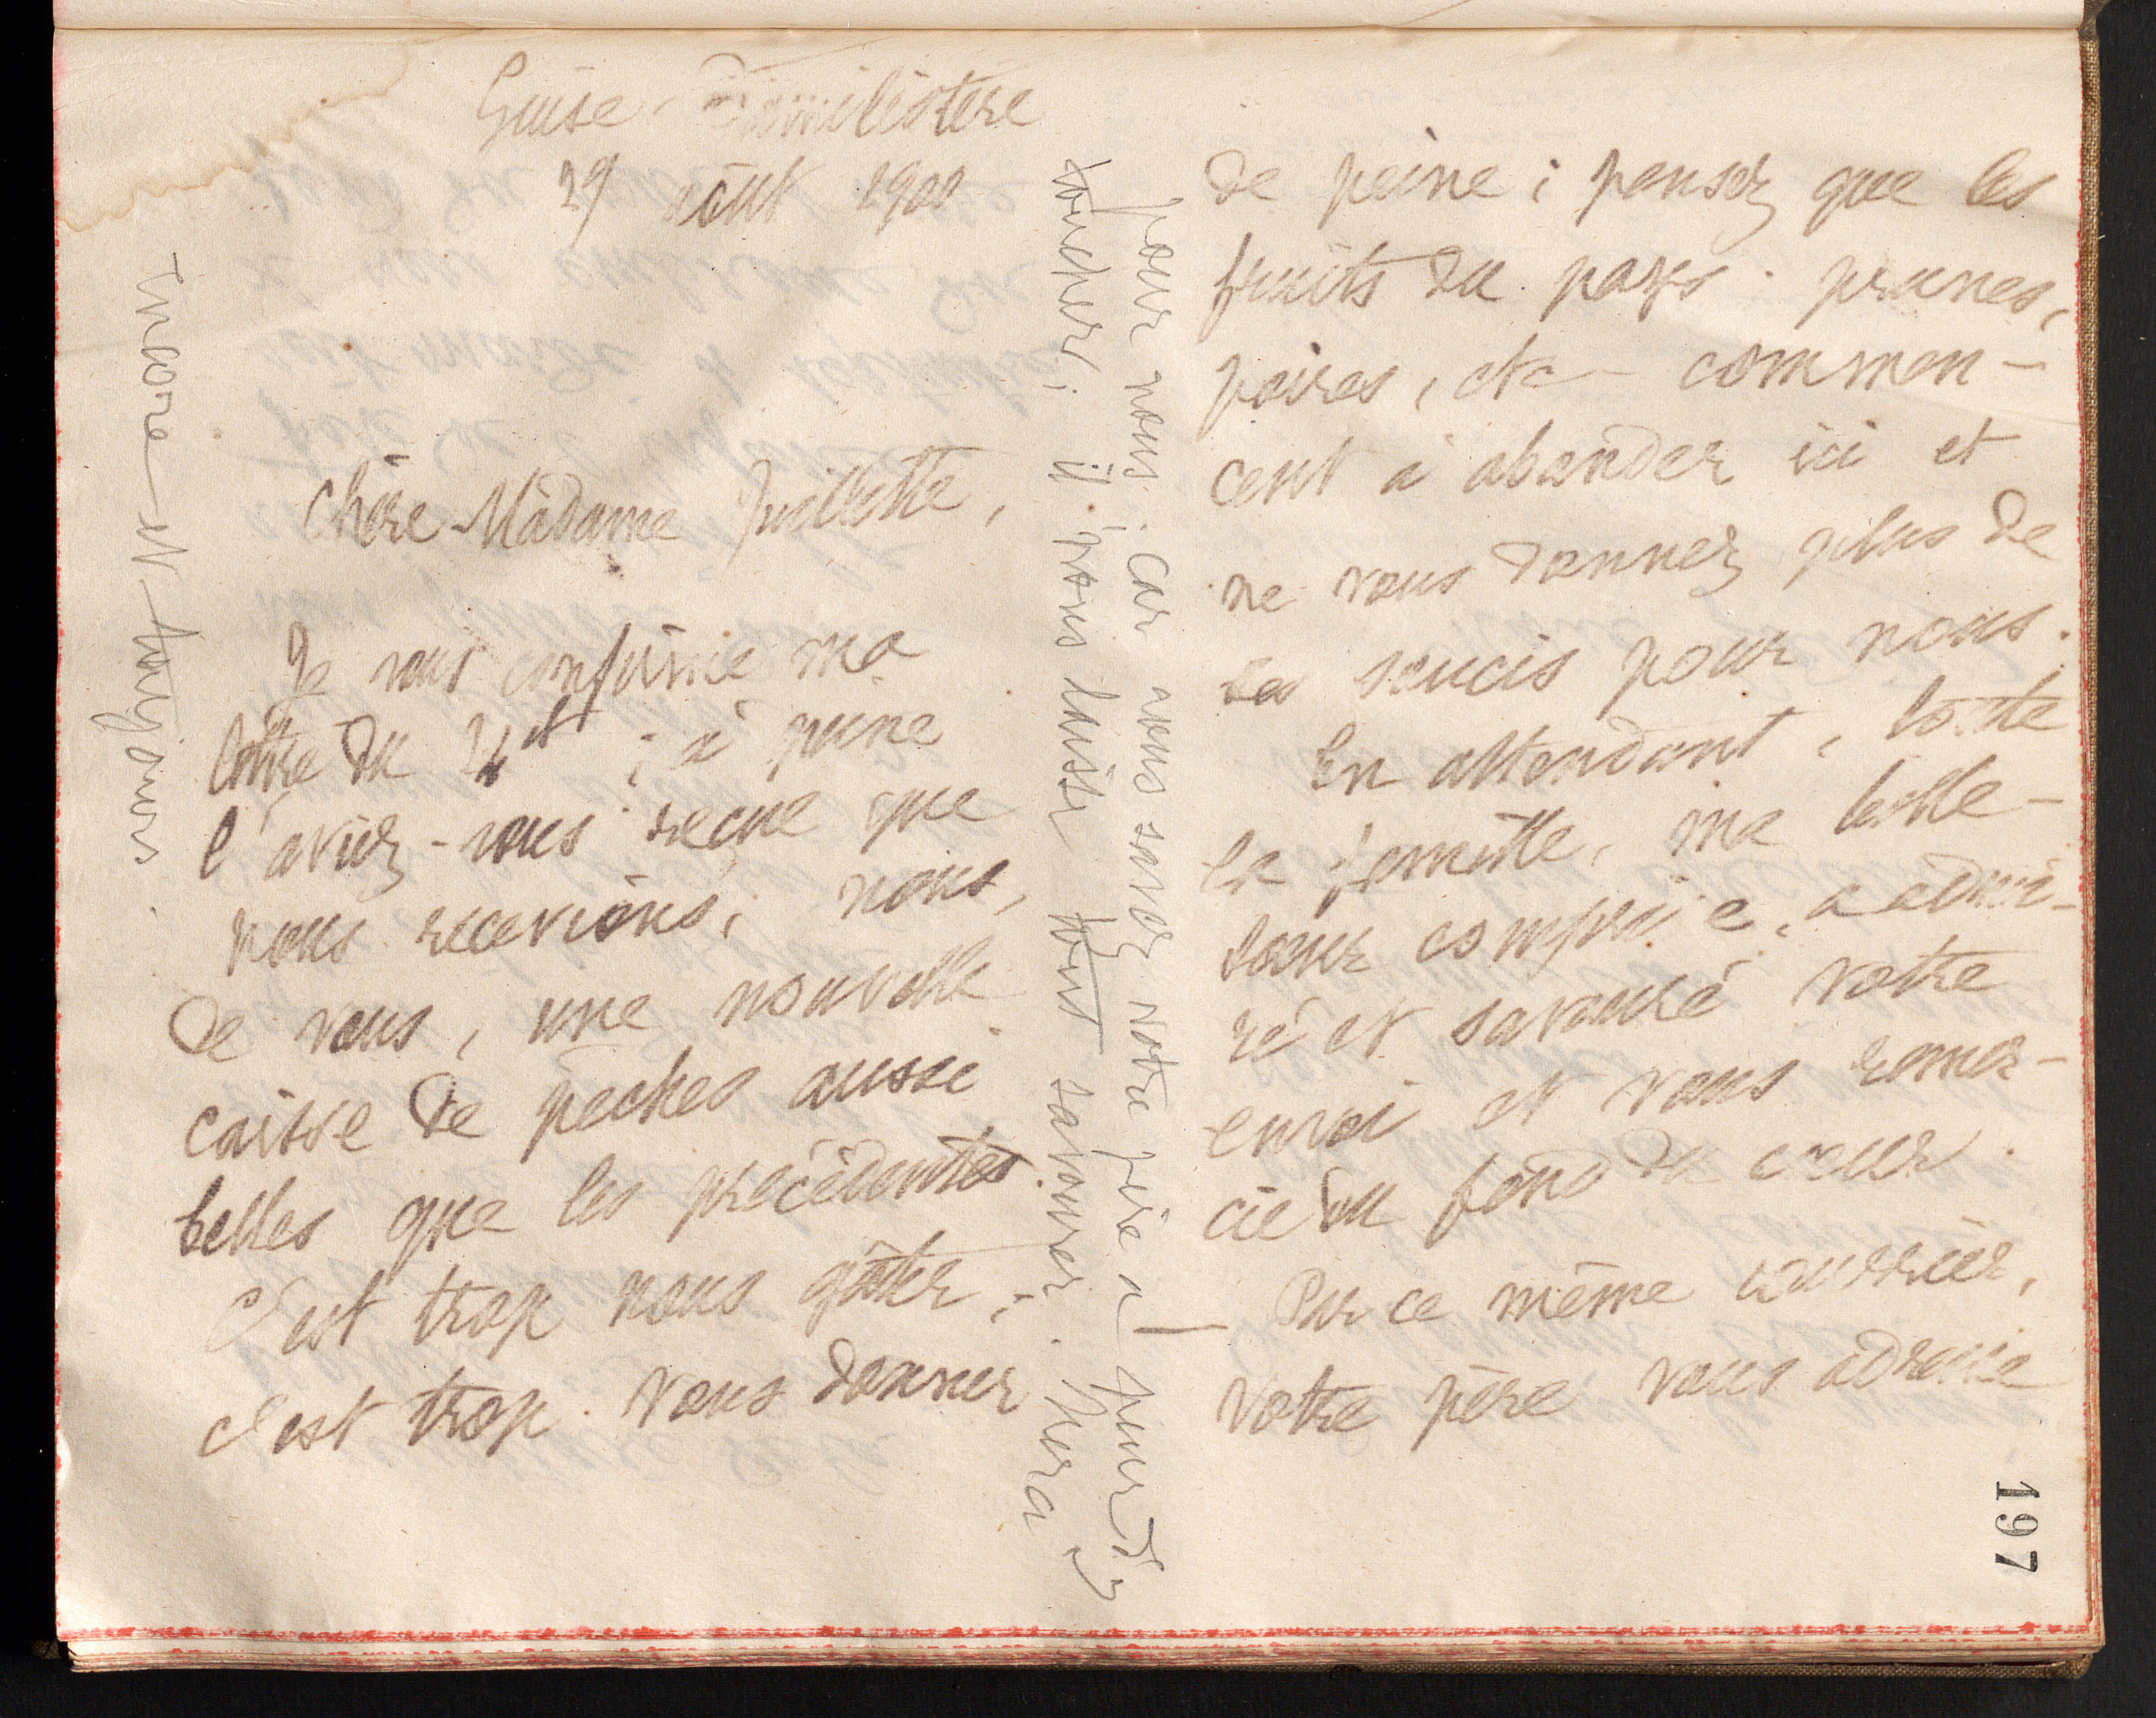 Guise Familistère
29 août 1900
Chère Madame Juillette,
Je vous confirme ma
lettre du 24 ct ; à peine
l'aviez-vous reçue que
nous recevions, nous,
de vous, une nouvelle
caisse de pêches aussi
belles que les précédentes.
C'est trop nous gâter ;
c'est trop vous donner
de peine ; pensez que les
fruits du pays : prunes,
poires, etc - commen-
cent à abonder ici et
ne vous donnez plus de
ces soucis pour nous.
En attendant, toute
la famille, ma belle-
sœur comprise, a admi-
ré et savouré votre
envoi et vous remer-
cie du fond du cœur.
Par ce même courrier,
votre père vous adresse
pour nous ; car vous savez votre père a peur d'y
toucher ; il nous laisse tout savourer. Merci
encore et toujours.
197